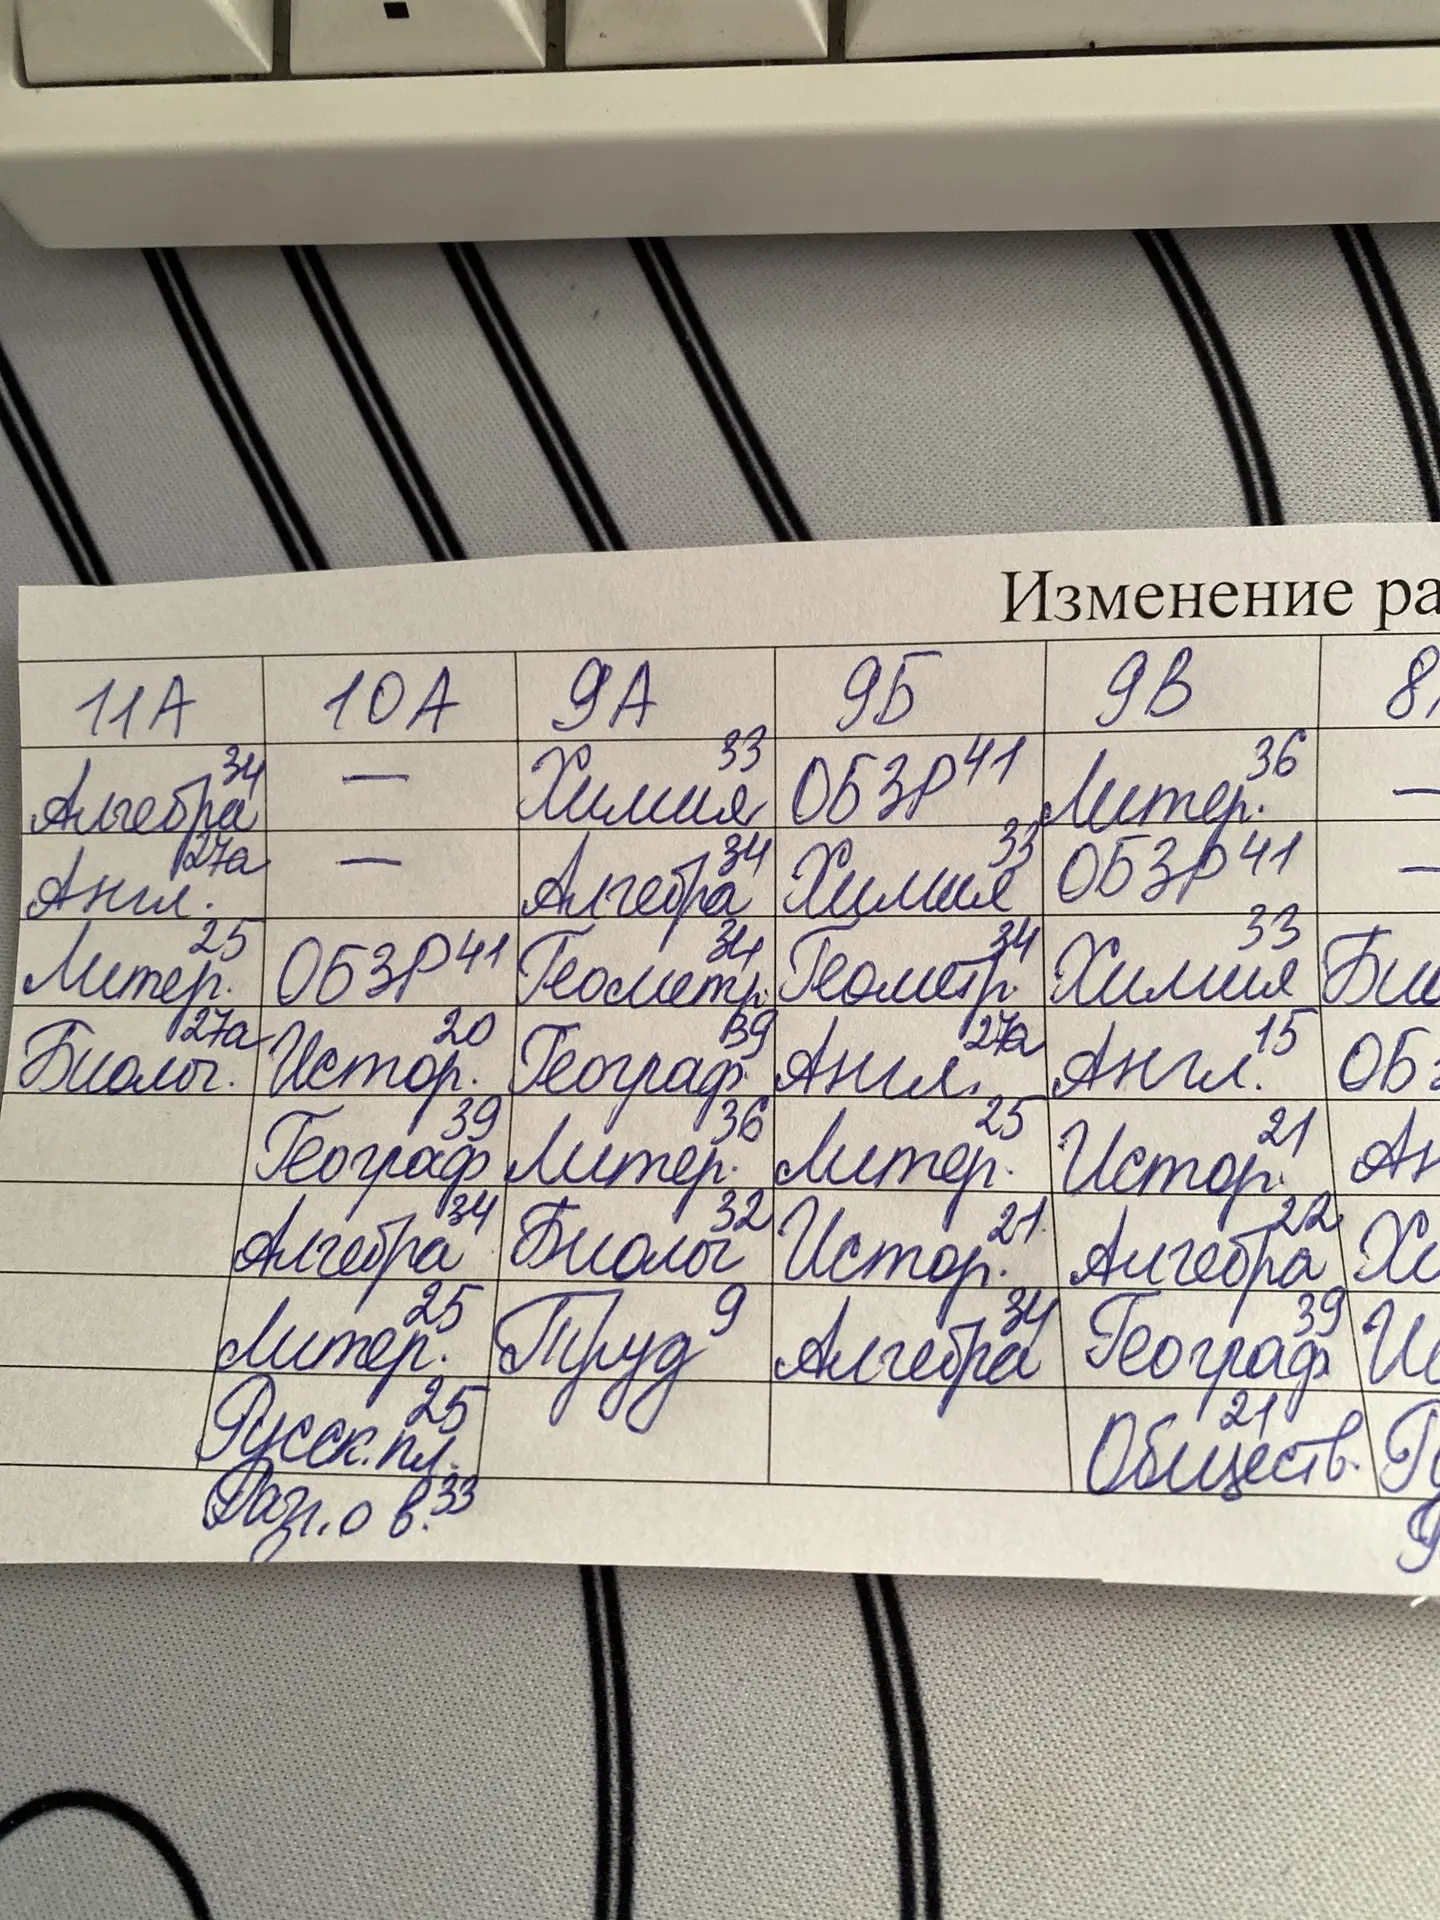 Изменение ра
11А 10А 9А 9Б 9В 8А
Алгебра 34 — Химия 33 ОБЗР 41 Литер. 36 —
Англ. 27а — Алгебра 34 Химия 33 ОБЗР 41 —
Литер. 25 ОБЗР 41 Геометр. 34 Геометр. 34 Химия 33 Био
Биолог. 27а Истор. 20 Географ. 39 Англ. 27а Англ. 15 ОБЗ
Географ 39 Литер. 36 Литер. 25 Истор. 21 Ан
Алгебра 34 Биолог 32 Истор. 21. Алгебра 22 Хи
Литер. 25 Труд 9 Алгебра 34 Географ 39 Ис
Русск. пл. 25 Обществ. 21
Разг. о в. 33